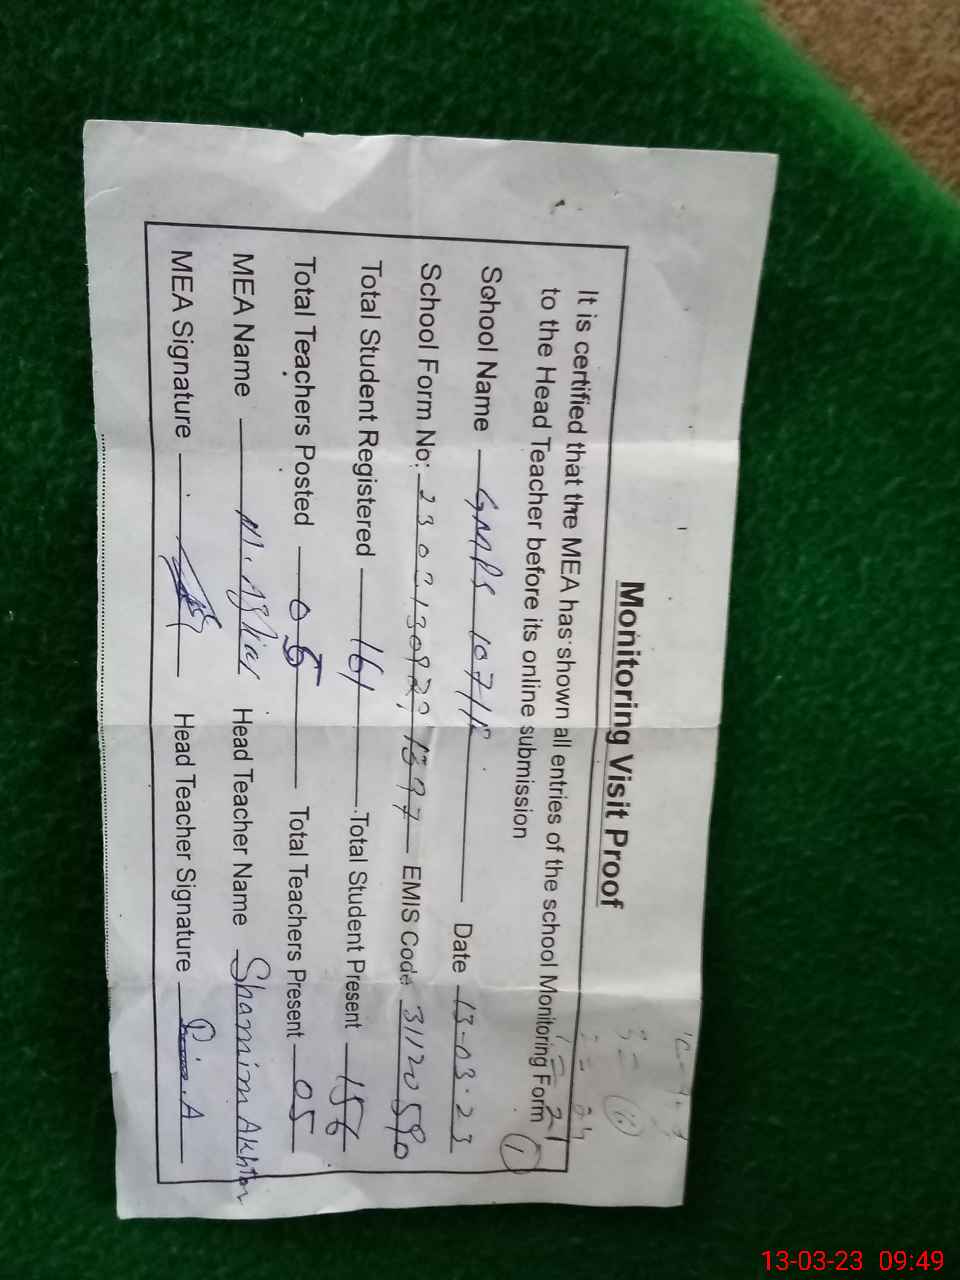 Monitoring Visit Proof
It is certified that the MEA has shown all entries of the school Monitoring Form
to the Head Teacher before its online submission
School Name GMPS 107/P Date 13-03-23
School Form No: EMIS Code 31120590
Total Student Registered 161 Total Student Present 156
Total Teachers Posted 05 Total Teachers Present 05
MEA Name Head Teacher Name Shamim Akhtar
MEA Signature Head Teacher Signature
1
13-03-23 09:49